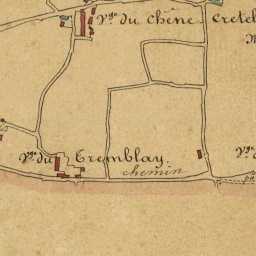 Vge du Chêne
Cretel
Vge du Tremblay.
chemin
Vge